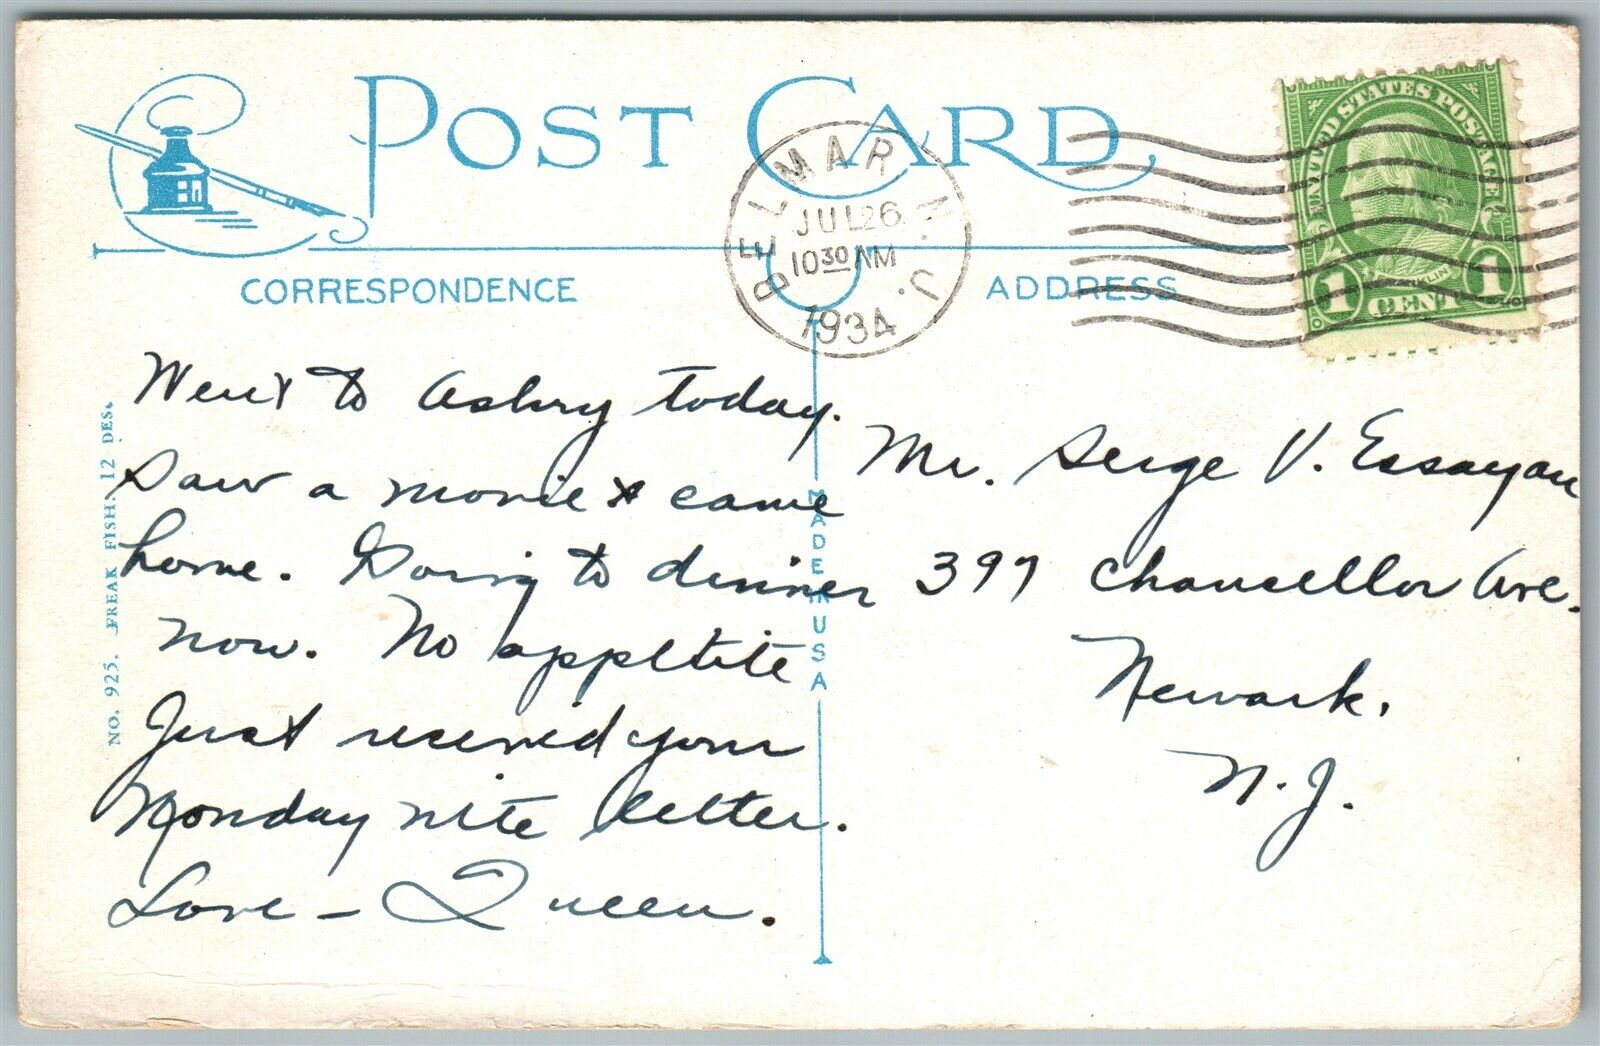 POST CARD
BELMAR N.J.
JUL 26
10 30 AM
1934
UNITED STATES POSTAGE
FRANKLIN
1 CENT 1
CORRESPONDENCE
ADDRESS
NO. 925. FREAK FISH. 12 DES.
MADE IN USA
Went to Asbury today.
Saw a movie & came
home. Going to dinner
now. No appetite
Just received your
Monday nite letter.
Love - Queen.
Mr. Serge V. Essayan
397 Chancellor Ave.
Newark,
N.J.